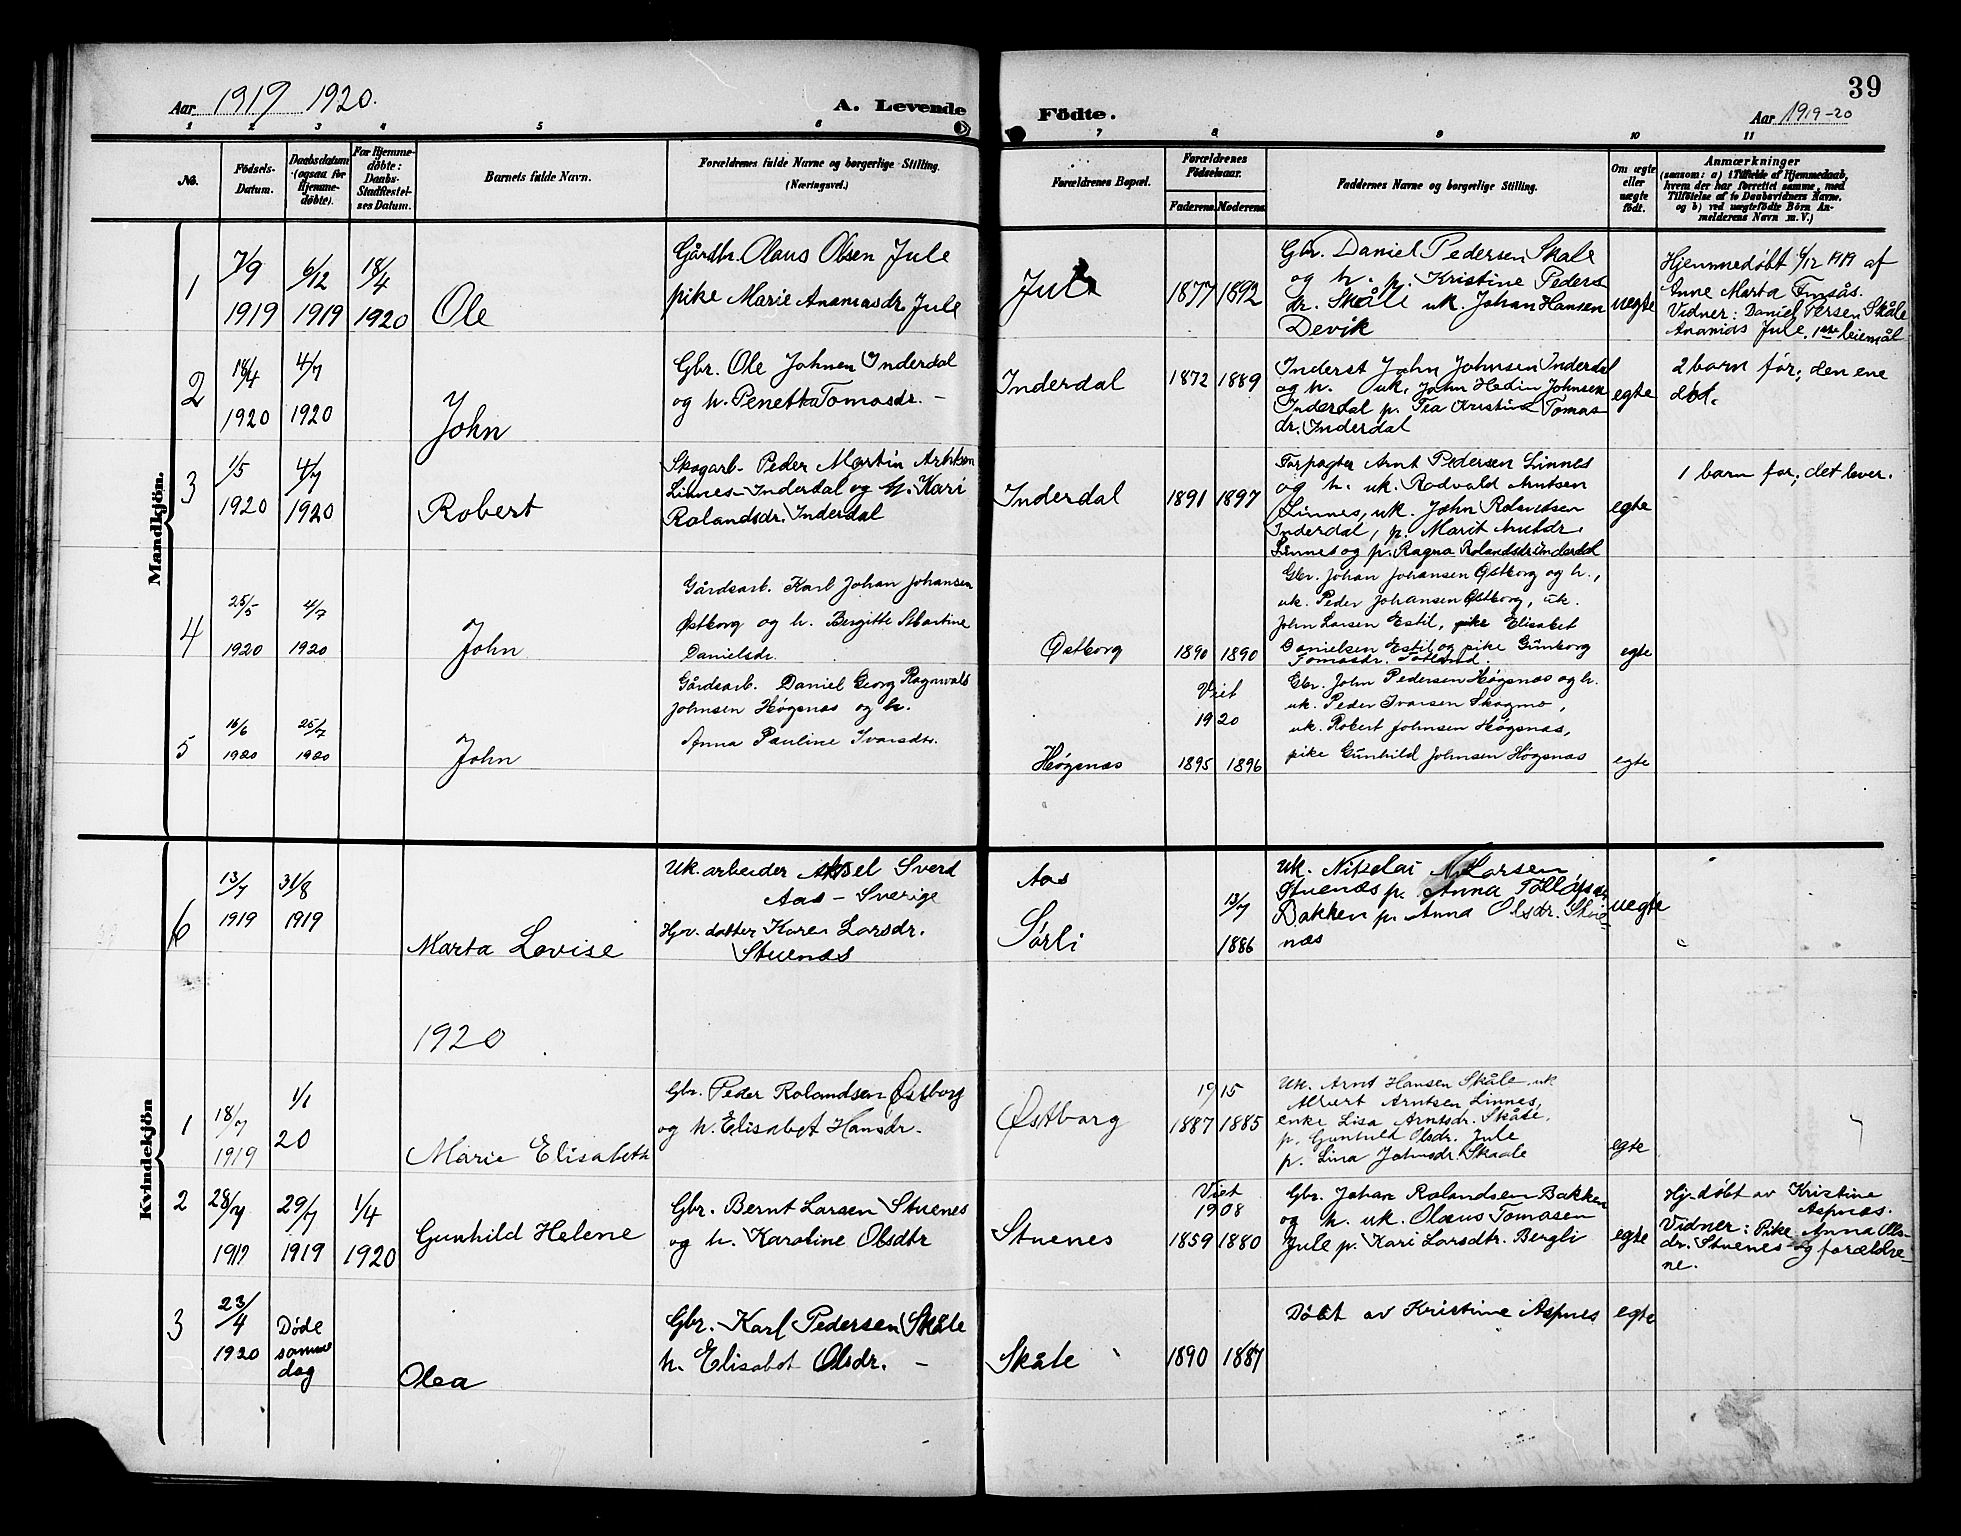 39
Aar 1919 1920.
A. Levende
Födte.
Aar 1919-20
1 2 3 4 5 6 7 8 9 10 11
No.
Födsels-
Datum.
Daabsdatum
(ogsaa for
Hjemme-
döbte).
For Hjemme-
döbte:
Daabs-
Stadfæstel-
ses Datum.
Barnets fulde Navn.
Forældrenes fulde Navne og borgerlige Stilling.
(Næringsvei.)
Forældrenes Bopæl.
Forældrenes
Födselsaar.
Faderens. Moderens.
Faddernes Navne og borgerlige Stilling.
Om ægte
eller
uægte
födt.
Anmærkninger
(saasom: a) i Tilfælde af Hjemmedaab,
hvem der har forrettet samme, med
Tilföielse af to Daabsvidners Navne,
og b) ved uægtefödte Börn An-
melderens Navn m. V.)
Mandkjön.
1
7/9
1919
6/12
1919
18/4
1920
Ole
Gårdbr. Olaus Olsen Jule
pike Marie Ananiasdr. Jule
Jule
1877
1892
Gbr. Daniel Pedersen Skåle
og h. p. Kristine Peders
dr. Skåle uk. Johan Hansen
Devik
uegte
Hjemmedøbt 6/12 1919 af
Anne Marta
Vidner: Daniel Persen Skåle
Ananias Jule. 1ste leiemål
2
18/4
1920
4/7
1920
John
Gbr. Ole Johnen Inderdal
og h. Penetta Tomasdr. -
Inderdal
1872
1889
Inderst John Johnsen Inderdal
og h. uk. John Hedin Johnsen
Inderdal p. Tea Kristine Tomas
dr. Inderdal
egte
2 barn før; den ene
død.
3
1/5
1920
4/7
1920
Robert
Skogarb. Peder Martin
Linnes-Inderdal og h. Kari
Rolandsdr. Inderdal
Inderdal
1891
1897
Forpagter Arnt Pedersen Linnes
og h. uk. Rodvald Arntsen
Linnes, uk. John Rolandsen
Inderdal, p. Marit Arntdr.
Linnes og p. Ragna Rolandsdr Inderdal
egte
1 barn før; det lever.
4
25/5
1920
4/7
1920
John
Gårdsarb. Karl Johan Johansen
Østborg og h. Bergitte Martine
Danielsdr.
Østborg
1890
1890
Gbr. Johan Johansen Østborg og h.,
uk. Peder Johansen Østborg, uk.
John Larsen Estil, pike Elisabet
Danielsen Estil og pike Gunborg
Tomasdr. Totland.
egte
5
16/6
1920
25/7
1920
John
Gårdsarb. Daniel Georg Ragnvald
Johnsen Høgsnæs og h.
Anna Pauline Ivarsdtr.
Høgsnæs
Viet
1920
1895
1896
Gbr. John Pedersen Høgsnæs og h.
uk. Peder Ivarsen Skogmo,
uk. Robert Johnsen Høgsnæs,
pike Gunhild Johnsen Høgsnæs
egte
Kvindekjön
6
13/7
1919
31/8
1919
Marta Lovise
Uk. arbeider Aksel Sverd
Aas - Sverige
Hjv. datter Karen Larsdr.
Stuenæs
Aas
Sørli
13/7
1886
Uk. Nikolai Larsen
Stuenæs p. Anna
Bakken p. Anna Olsdr. Stue-
næs
uegte
1920
1
18/7
1919
1/1
20
Marie Elisabeth
Gbr. Peder Rolandsen Østborg
og h. Elisabet Hansdr.
Østborg
1915
1887
1885
Uk. Arnt Hansen Skåle, uk
Albert Arntsen Linnes,
enke Lisa Arntsdr. Skåle,
p. Gunhild Olsdr. Jule
p. Lina Johnsdr. Skaale
egte
2
28/7
1919
29/7
1919
1/4
1920
Gunhild Helene
Gbr. Bernt Larsen Stuenes
og h. Karoline Olsdtr
Stuenes
Viet
1908
1859
1880
Gbr. Johan Rolandsen Bakken
og h. uk. Olaus Tomasen
Jule p. Kari Larsdtr. Bergli
egte
Hj.døbt av Kristine
Aspnæs.
Vidner: Pike Anna Ols-
dr. Stuenes og forældre-
ne.
3
23/4
1920
Døde
samme
dag
Olea
Gbr. Karl Pedersen Skåle
h. Elisabet Olsdr. -
Skåle
1890
1887
Døbt av Kristine Aspnes
egte